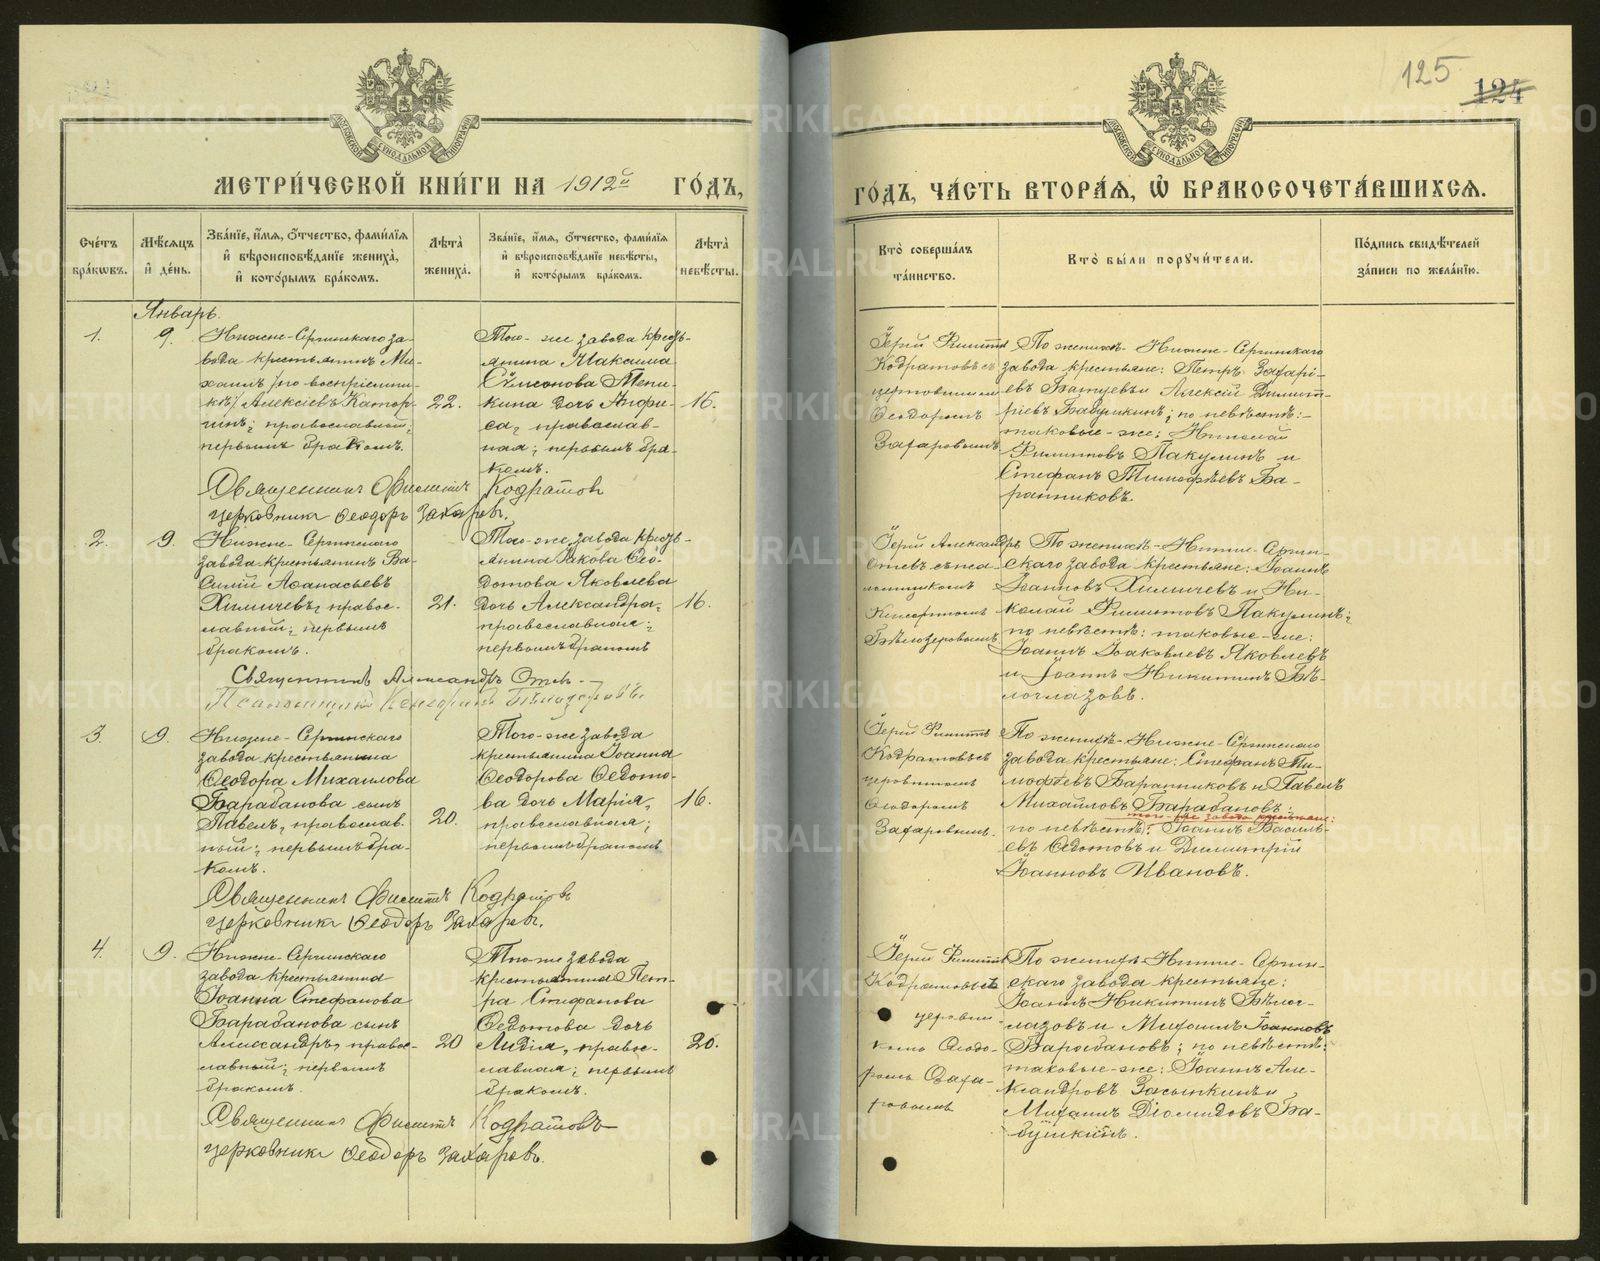 125
124
МОСКОВСКОЙ СѴНОДАЛЬНОЙ ТИПОГРАФІИ
МЕТРИ́ЧЕСКОЙ КНИ́ГИ НА 1912й ГО́ДЪ,
Сче́тъ бра́кωвъ.
Мѣ́сяцъ и҆ де́нь.
Зва́нїе, и҆́мѧ, ѻ҆́тчество, фами́лїѧ
и҆ вѣроисповѣ́данїе жениха̀,
и҆ кото́рымъ бра́комъ.
Лѣ́та̀ жениха̀.
Зва́нїе, и҆́мѧ, ѻ҆́тчество, фами́лїѧ
и҆ вѣроисповѣ́данїе невѣ́сты,
и҆ кото́рымъ бра́комъ.
Лѣ́та̀ невѣ́сты.
Январь.
1.
9.
Нижне-Сергинскаго за-
вода крестьянинъ Ми-
хаилъ /по воспріемни-
ку/ Алексіевъ Катор-
гинъ; православный;
первымъ бракомъ.
22.
Того-же завода кресть-
янина Максима
Сѵмеонова Тепи-
кина дочь Анфи-
са, православ-
ная; первымъ бра-
комъ.
16.
Священникъ Филиппъ Кодратовъ
церковникъ Ѳеодоръ Захаровъ.
2.
9.
Нижне-Сергинскаго
завода крестьянинъ Ва-
силій Аѳанасьевъ
Химичевъ, правос-
лавный; первымъ
бракомъ.
21.
Того-же завода кресть-
янина Іакова Ѳео-
дотова Яковлева
дочь Александра,
православная;
первымъ бракомъ
16.
Священникъ Александръ Отев-
Псаломщикъ Ксенофонтъ Бѣлозеровъ.
3.
9.
Нижне-Сергинскаго
завода крестьянина
Ѳеодора Михаилова
Барабанова сынъ
Павелъ, православ-
ный; первымъ бра-
комъ.
20.
Того-же завода
крестьянина Іоанна
Ѳеодорова Ѳедото-
ва дочь Марія,
православная;
первымъ бракомъ
16.
Священникъ Филиппъ Кодратовъ
церковникъ Ѳеодоръ Захаровъ.
4.
9.
Нижне-Сергинскаго
завода крестьянина
Іоанна Стефанова
Барабанова сынъ
Александръ, правос-
лавный; первымъ
бракомъ.
20
Того-же завода
крестьянина Пет-
ра Стефанова
Ѳедотова дочь
Лидія, правос-
лавная; первымъ
бракомъ.
20.
Священникъ Филиппъ Кодратовъ
церковникъ Ѳеодоръ Захаровъ.
ГО́ДЪ, ЧА́СТЬ ВТОРА́Ѧ, Ѽ БРАКОСОЧЕТА́ВШИХСѦ.
Кто̀ соверша́лъ
та́инство.
Кто̀ бы́ли порꙋчи́тели.
По́дпись свидѣ́телей
за́писи по жела́нїю.
Іерей Филиппъ
Кодратовъ съ
церковникомъ
Ѳеодоромъ
Захаровымъ
По женихѣ- Нижне-Сергинскаго
завода крестьяне: Петръ Захарі-
евъ Батуевъ и Алексій Димит-
ріевъ Бабушкинъ; по невѣстѣ:-
таковые-же: Николай
Филипповъ Пакулинъ и
Стефанъ Тимоѳѣевъ Ба-
ранниковъ.
Іерей Александръ
Отевъ съ пса-
ломщикомъ
Ксенофонтомъ
Бѣлозеровымъ
По женихѣ-Нижне-Сергин-
скаго завода крестьяне: Іоаннъ
Іоанновъ Химичевъ и Ни-
колай Филипповъ Пакулинъ;
по невѣстѣ: таковые-же:
Іоаннъ Іаковлевъ Яковлевъ
и Іоаннъ Никитинъ Бѣ-
логлазовъ.
Іерей Филиппъ
Кодратовъ съ
церковникомъ
Ѳеодоромъ
Захаровымъ.
По женихѣ-Нижне-Сергинскаго
завода крестьяне: Стефанъ Ти-
моѳѣевъ Баранниковъ и Павелъ
Михаиловъ Барабановъ;
того-же завода крестьяне:
по невѣстѣ: Іоаннъ Василь-
евъ Ѳедотовъ и Димитрій
Іоанновъ Ивановъ.
Іерей Филиппъ
Кодратовъ съ
церковни-
комъ Ѳеодо-
ромъ Заха-
ровымъ
По женихѣ-Нижне-Сергин-
скаго завода крестьяне:
Іоаннъ Никитинъ Бѣлог-
лазовъ и Михаилъ Іоанновъ
Барабановъ; по невѣстѣ:
таковые-же: Іоаннъ Але-
ксандровъ Засыпкинъ и
Михаилъ Діомидовъ Ба-
бушкинъ.
METRIKI.GASO-URAL.RU